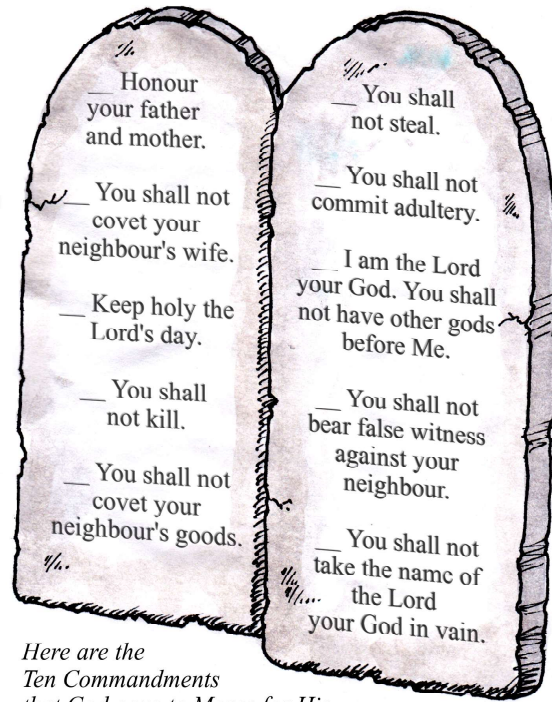 __ Honour
your father
and mother.
__ You shall not
covet your
neighbour's wife.
__ Keep holy the
Lord's day.
__ You shall
not kill.
__ You shall not
covet your
neighbour's goods.
__ You shall
not steal.
__ You shall not
commit adultery.
__ I am the Lord
your God. You shall
not have other gods
before Me.
__ You shall not
bear false witness
against your
neighbour.
__ You shall not
take the name of
the Lord
your God in vain.
Here are the
Ten Commandments
that God gave to Moses for His